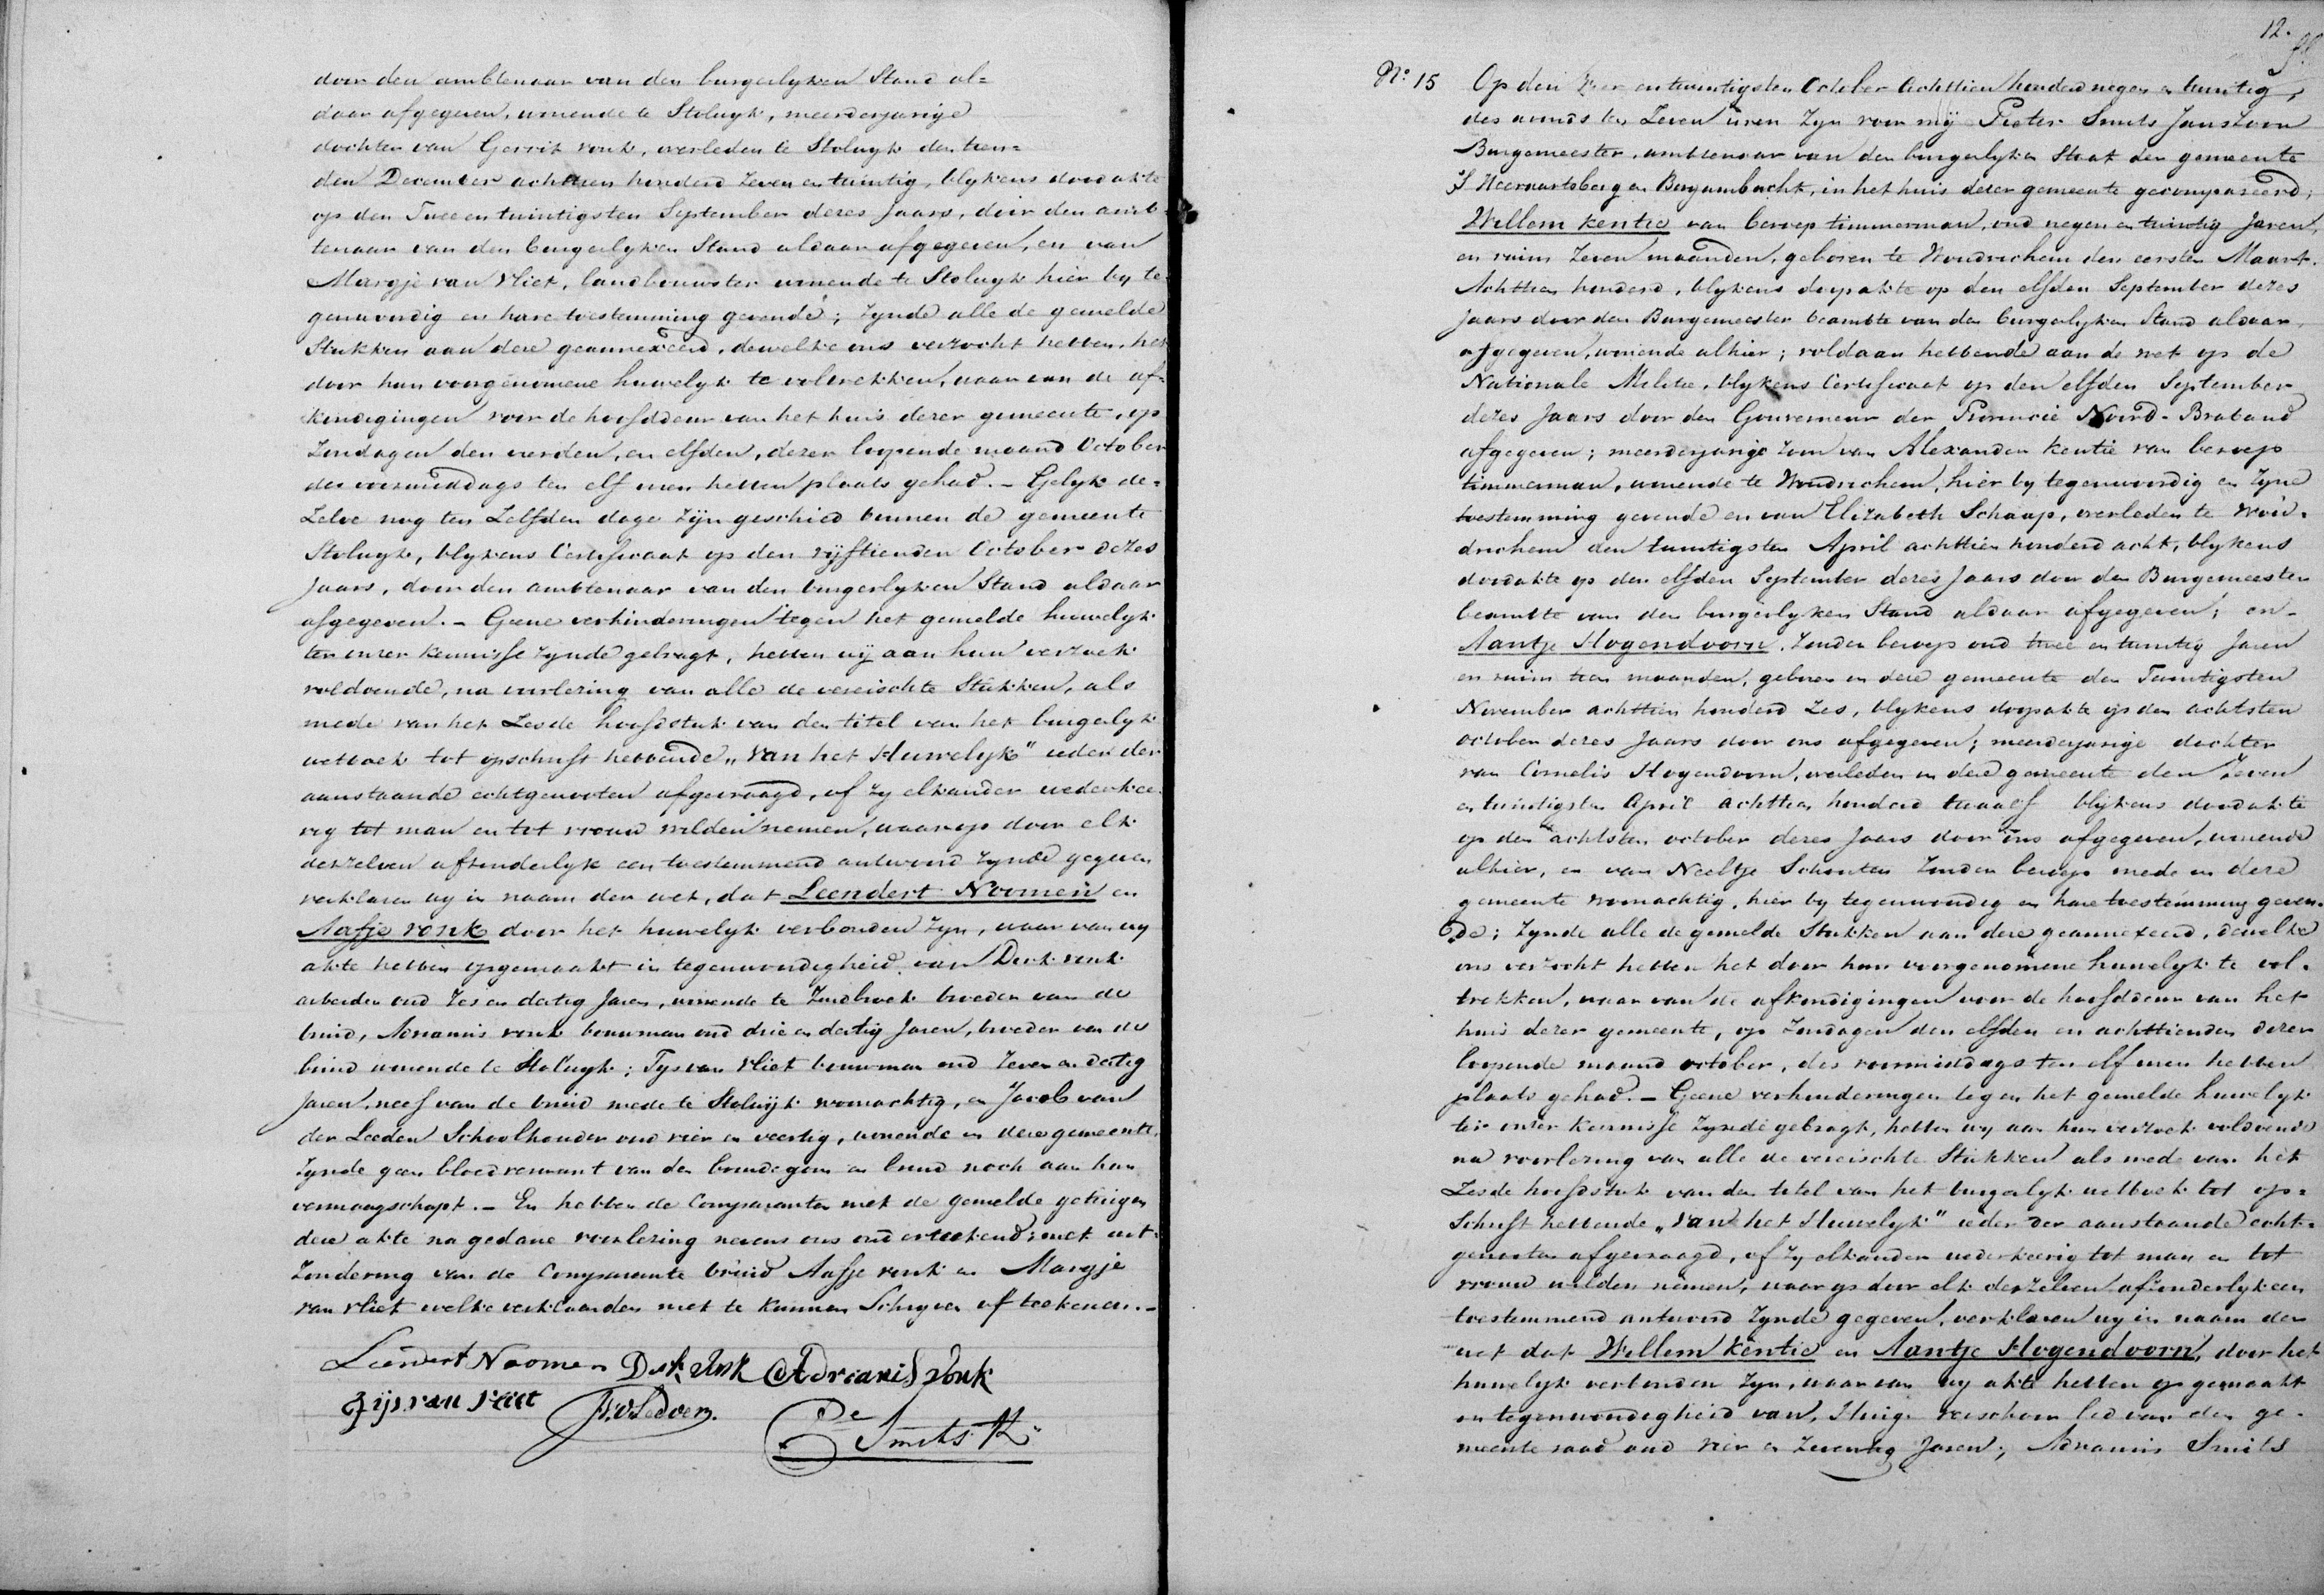 door den ambtenaar van den burgerlyken Stand al=
daar afgegeven, wonende te Stolwyk, meerderjarige
dochter van Gerrit vonk, overleden te Stolwyk den tien=
den December achttien honderd zeven en twintig, blykens doodakte
op den Twee en twintigsten September dezes Jaars, door den amb=
tenaar van den burgerlyken Stand aldaar afgegeven, en van
Margje van Vliet, landbouwster wonende te Stolwyk hier by te=
genwoordig en hare toestemming gevende; Zynde alle de gemelde
Stukken aan deze geannexeerd, dewelke ons verzocht hebben, het
door hun voorgenomene huwelyk te voltrekken, waar van de af=
kondigingen voor de hoofddeur van het huis dezer gemeente, op
Zondagen den vierden, en elfden, dezer loopende maand October
des voormiddags ten elf uren hebben plaats gehad. - Gelyk de=
Zelve nog ten Zelfden dage Zijn geschied binnen de gemeente
Stolwyk, blykens Certificaat op den vijftienden October dezes
Jaars, door den ambtenaar van den burgerlyken Stand aldaar
afgegeven. - Geene verhinderingen tegen het gemelde huwelyk
ter onzer kennisse Zynde gebragt, hebben wij aan hun verzoek
voldoende, na voorlezing van alle de vereischte Stukken, als
mede van het Zesde hoofdstuk van den titel van het burgerlyk
wetboek tot opschrift hebbende „Van het Huwelyk" ieder der
aanstaande echtgenooten afgevraagd, of Zy elkander wederkee=
rig tot man en tot vrouw wilden nemen, waarop door elk
derzelven afzonderlyk een toestemmend antwoord Zynde gegeven
verklaren wy in naam der wet, dat Leendert Noomen en
Aafje vonk door het huwelyk verbonden Zyn, waar van wy
akte hebben opgemaakt in tegenwoordigheid van Dirk vonk
arbeider oud Zes en dertig Jaren, wonende te Zuidbroek broeder van de
bruid, Adrianus vonk bouwman oud drie en dertig Jaren, broeder van de
bruid wonende te Stolwyk; Tys van Vliet bouwman oud Zeven en dertig
Jaren, neef van de bruid mede te Stolwijk woonachtig, en Jacob van
der Leeden Schoolhouder oud vier en veertig, wonende in deze gemeente,
Zynde geen bloedverwant van den bruidegom en bruid noch aan hun
vermaagschapt. - En hebben de Comparanten met de gemelde getuigen
deze akte na gedane voorlezing nevens ons onderteekend; met uit=
Zondering van de Comparante bruid Aafje vonk en Margje
van vliet welke verklaarden niet te kunnen Schryven of teekenen. -
Leendert Noomen Dirk vonk Adrianis vonk
Tijs van vliet
Smits
12.
No: 15 Op den Vier en twintigsten October Achttien honderd negen en twintig,
des avonds ten Zeven uren Zyn voor mij Pieter Smits Janszoon
Burgemeester, ambtenaar van den burgerlyken Staat der gemeente
S'Heeraartsberg en Bergambacht, in het huis dezer gemeente gecompareerd;
Willem Kentie van beroep timmerman, oud negen en twintig Jaren,
en ruim Zeven maanden, geboren te Woudrichem den eersten Maart
Achttien honderd, blykens doopakte op den elfden September dezes
Jaars door den Burgemeester beambte van den burgerlyken Stand aldaar
afgegeven, wonende alhier; voldaan hebbende aan de wet op de
Nationale Militie, blykens Certificaat op den elfden September
dezes Jaars door den Gouverneur der Provincie Noord-Braband
afgegeven; meerderjarige Zoon van Alexander Kentie van beroep
timmerman, wonende te Woudrichem, hier by tegenwoordig en Zyne
toestemming gevende en van Elizabeth Schaap, overleden te Woud=
drichem den twintigsten April achttien honderd acht, blykens
doodakte op den elfden September dezes Jaars door den Burgemeester
beambte van den burgerlyken Stand aldaar afgegeven; en -
Aantje Hogendoorn, Zonder beroep oud twee en twintig Jaren
en ruim tien maanden, geboren in deze gemeente den Twintigsten
November achttien honderd Zes, blykens doopakte op den achtsten
october dezes Jaars door ons afgegeven; meerderjarige dochter
van Cornelis Hogendoorn, overleden in deze gemeente den Zeven
en twintigsten April achttien honderd twaalf blijkens doodakte
op den achtsten october dezes Jaars door ons afgegeven, wonende
alhier, en van Neeltje Schouten Zonder beroep mede in deze
gemeente woonachtig, hier by tegenwoordig en hare toestemming geven=
de; Zynde alle de gemelde Stukken aan deze geannexeerd, dewelke
ons verzocht hebben het door hun voorgenomene huwelyk te vol=
trekken, waar van de afkondigingen voor de hoofddeur van het
huis dezer gemeente, op Zondagen den elfden en achttienden dezer
loopende maand october, des voormiddags ten elf uren hebben
plaats gehad. - Geene verhinderingen tegen het gemelde huwelyk
ter onzer kennisse Zynde gebragt, hebben wy aan hun verzoek voldoende
na voorlezing van alle de vereischte Stukken als mede van het
Zesde hoofdstuk van den titel van het burgerlyk wetboek tot op=
Schrift hebbende „Van het Huwelyk" ieder der aanstaande echt=
genooten afgevraagd, of Zy elkander wederkeerig tot man en tot
vrouw wilden nemen, waarop door elk derzelven afzonderlyk een
toestemmend antwoord Zynde gegeven, verklaren wy in naam der
wet dat Willem Kentie en Aantje Hogendoorn, door het
huwelyk verbonden Zyn, waar van wy akte hebben op gemaakt
in tegenwoordigheid van, Huig Verschoor lid van den ge=
meente raad oud vier en Zeventig Jaren; Adrianus Smits